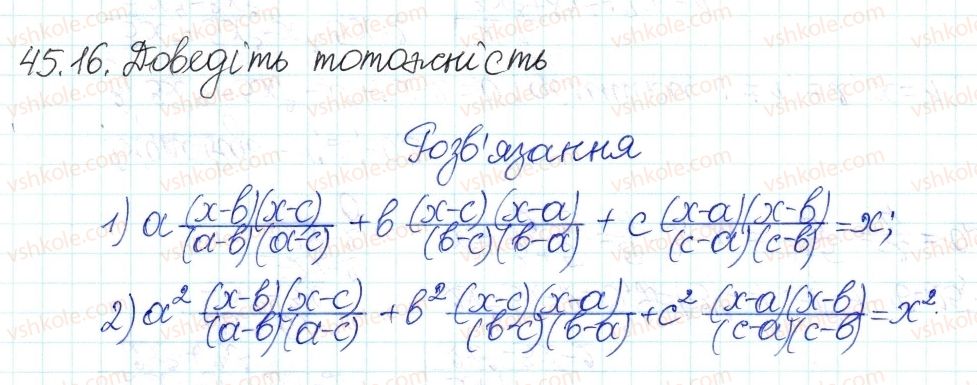 45.16. Доведіть тотожність
Розв'язання
1) a (x-b)(x-c)/(a-b)(a-c) + b (x-c)(x-a)/(b-c)(b-a) + c (x-a)(x-b)/(c-a)(c-b) = x;
2) a² (x-b)(x-c)/(a-b)(a-c) + b² (x-c)(x-a)/(b-c)(b-a) + c² (x-a)(x-b)/(c-a)(c-b) = x².